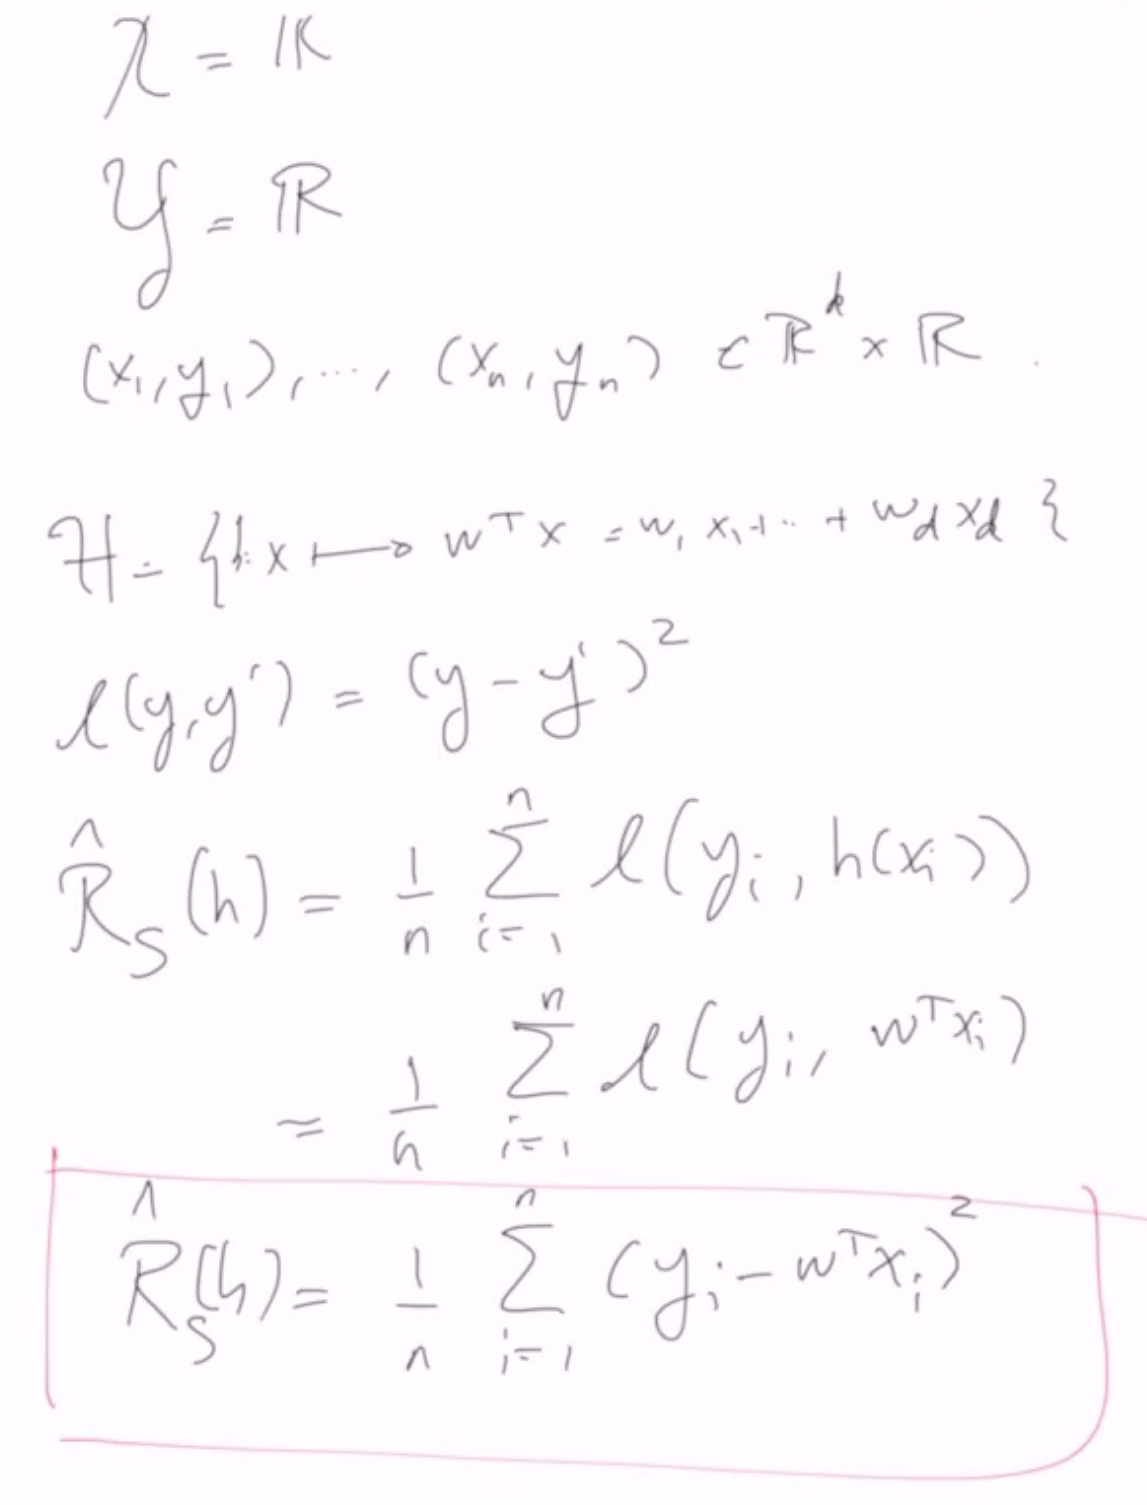 𝒳 = ℝ
𝒴 = ℝ
(x₁, y₁), ..., (xₙ, yₙ) ∈ ℝᵈ × ℝ.
ℋ = {h: x ↦ wᵀx = w₁x₁ + .. + w_d x_d}
ℓ(y, y') = (y - y')²
R̂_S(h) = 1/n ∑_{i=1}^{n} ℓ(yᵢ, h(xᵢ))
= 1/n ∑_{i=1}^{n} ℓ(yᵢ, wᵀxᵢ)
R̂_S(h) = 1/n ∑_{i=1}^{n} (yᵢ - wᵀxᵢ)²